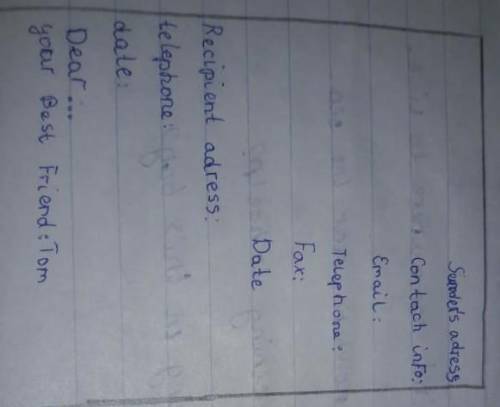 Sunder's adress
Contach info:
Email:
Telephone:
Fax:
Date
Recipient adress:
telephone:
date:
Dear...
your Best Friend: Tom